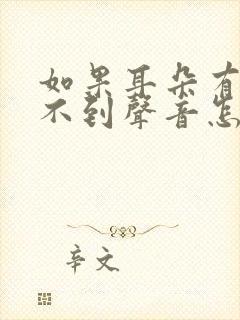 如果耳朵有
不到聲音怎
辛文